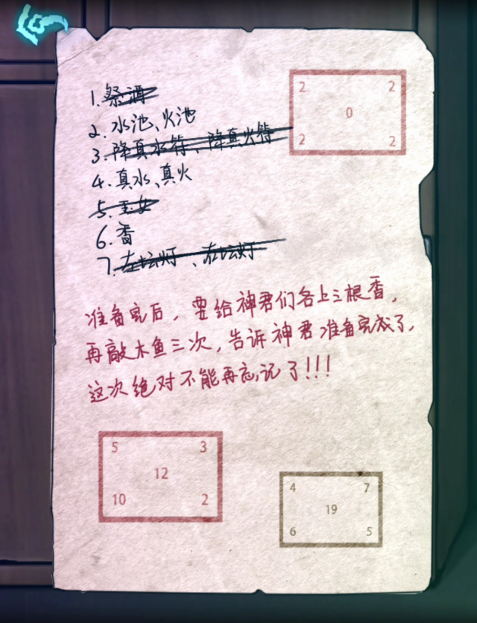 1.祭酒
2 2
2.水池、火池
0
3.降真水符、降真火符
2 2
4.真水、真火
5.玉女
6.香
7.左坛灯、右坛灯
准备完后，要给神君们各上三根香，
再敲木鱼三次，告诉神君准备完成了，
这次绝对不能再忘记了!!!
5 3
12
10 2
4 7
19
6 5